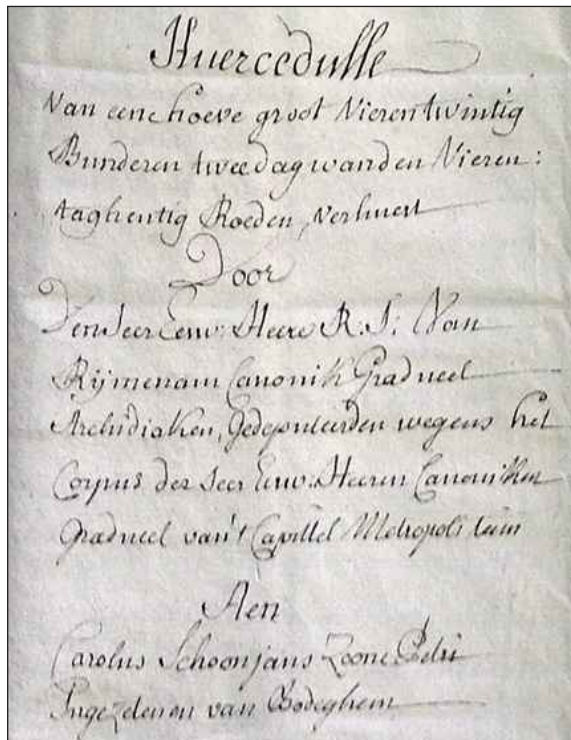 Huercedulle
Van eene hoeve groot Vierentwintig
Bunderen twee dagwanden Vieren:
taghentig Roeden, verhuert
Door
Den Seer Eerw: Heere R: J: Van
Rijmenam Canonik Gradueel
Archidiaken, Gedeputeerden wegens het
Corpus der Seer Eerw: Heeren Canoniken
Gradueel van't Capittel Metropolitain
Aen
Carolus Schoonjans Zoone Petri
Ingezetenen van Bodeghem